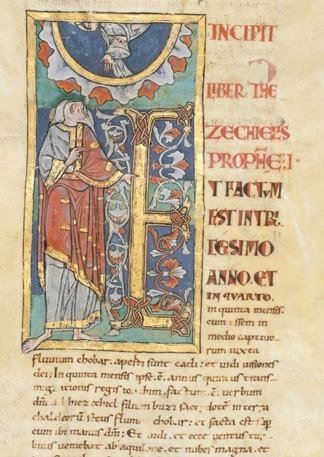 INCIPIT
LIBER IHE
ZECHIELIS
PROPHE I
T FACTUM
EST IN TRI
IGESIMO
ANNO. ET
IN QUARTO.
in quinta mensis.
cum essem in
medio captivo
rum iuxta
fluvium chobar. aperti sunt caeli: et vidi visiones
dei; In quinta mensis ipse annus quintus trans
migrationis regis ioachim. factum verbum
dni ad hiezechiel filium buzi sacerdotem in terra
chaldeorum flumen chobar: et facta est sup
eum ibi manus dni; Et vidi. et ecce ventus tur
binis veniebat ab aquilone. et nubes magna. et